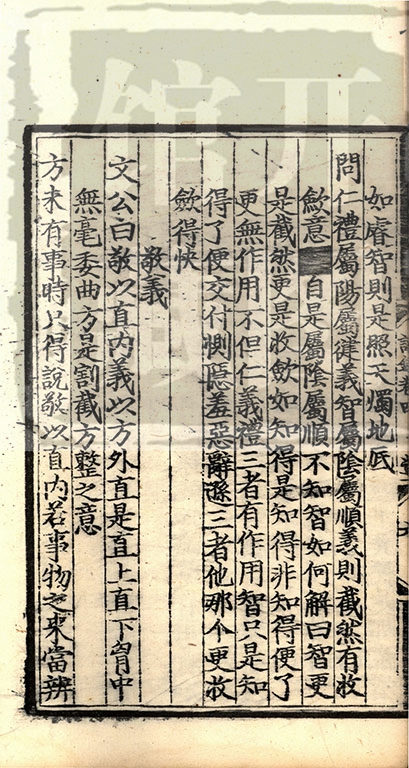 如睿智則是照天燭地底
問仁禮屬陽屬健義智屬陰屬順義則截然有收
歛意自是屬陰屬順不知智如何解曰智更
是截然更是收歛如知得是知得非知得便了
更無作用不但仁義禮三者有作用智只是知
得了便交付惻隱羞惡辭遜三者他那个更收
歛得快
敬義
文公曰敬以直内義以方外直是直上直下胷中
無毫委曲方是割截方整之意
方未有事時只得說敬以直内若事物之來當辨